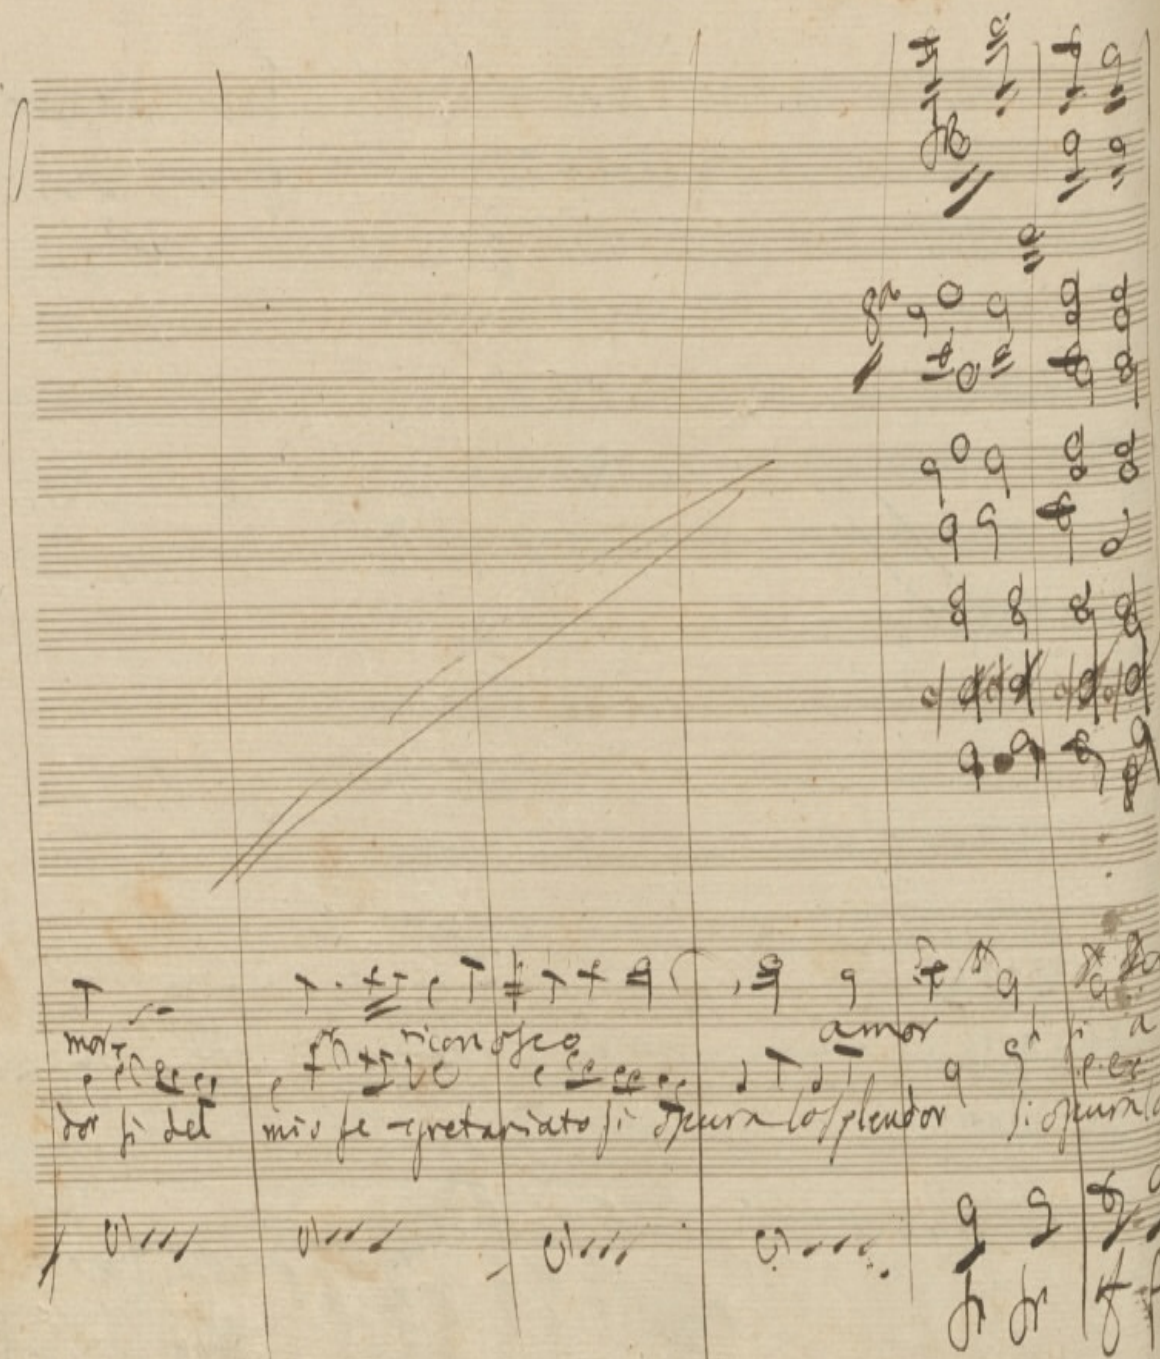 8va
mor riconosco amor si a
dor si del mio se gretariato si oscura lo splendor si oscura lo
fr fr